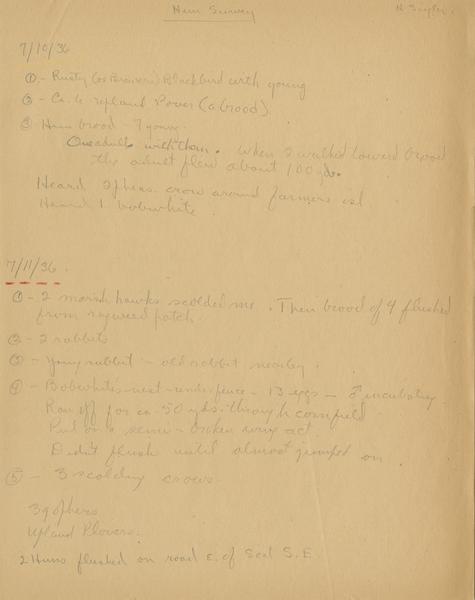 Hun Survey
7/10/36
① - Rusty (or Brewers) Blackbird with young
② - Ca. 6 upland Plover (a brood)
③ Hun brood - 7 young
One adult with them. When I walked toward brood
the adult flew about 100 yds.
Heard 2 phens. crow around farmers isl
Heard 1 bobwhite
7/11/36
① - 2 marsh hawks scolded me. Then brood of 4 flushed
from ragweed patch.
② - 2 rabbits
③ - Young rabbit - old rabbit nearby.
④ - Bobwhite's nest under fence - 13 eggs - ♂ incubating
Ran off for ca. 50 yds. through cornfield
Put on a semi-broken wing act
Didn't flush until almost jumped on.
⑤ - 3 scolding crows
39 ophers
Upland Plovers.
2 Huns flushed on road E. of Sect S.E.